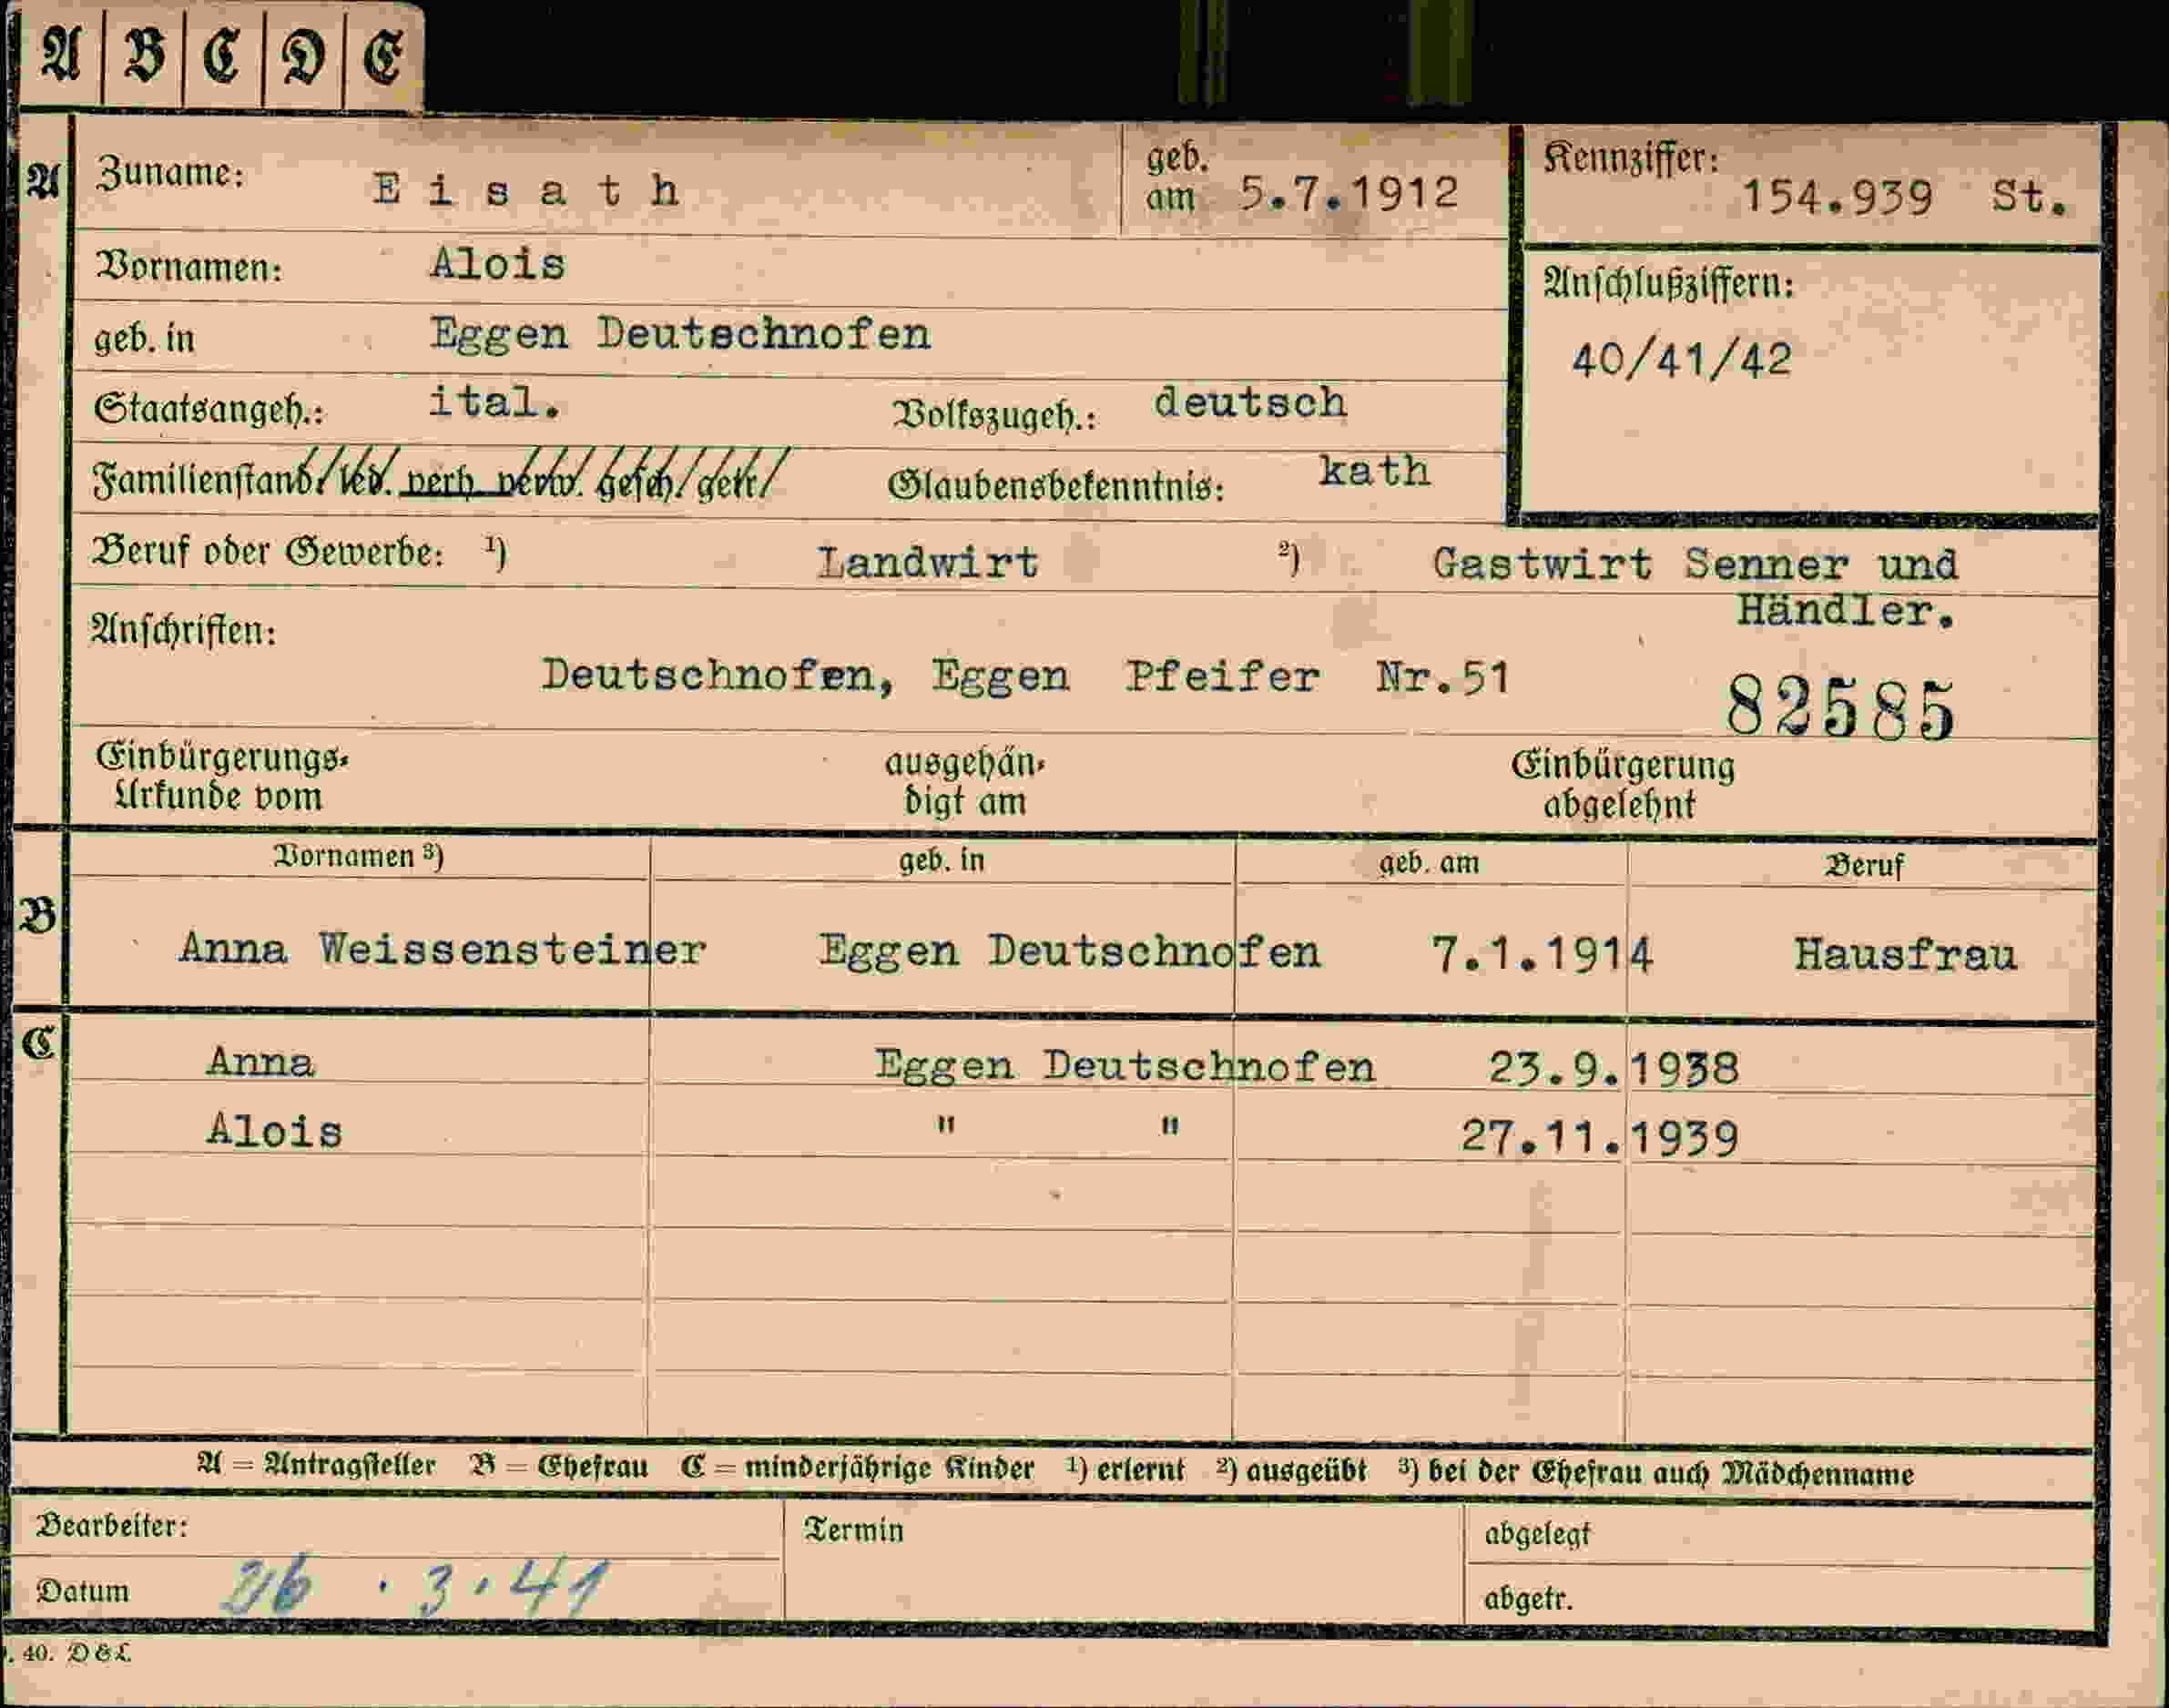 A B C D E
A
Zuname: Eisath geb. am 5.7.1912 Kennziffer: 154.939 St.
Vornamen: Alois
Anschlußziffern:
geb. in Eggen Deutschnofen
40/41/42
Staatsangeh.: ital. Volkszugeh.: deutsch
Familienstand: led. verh. verw. gesch. getr. Glaubensbekenntnis: kath
Beruf oder Gewerbe: ¹) Landwirt ²) Gastwirt Senner und
Händler.
Anschriften:
Deutschnofen, Eggen Pfeifer Nr.51
82585
Einbürgerungs-Urkunde vom ausgehändigt am Einbürgerung abgelehnt
Vornamen ³) geb. in geb. am Beruf
B
Anna Weissensteiner Eggen Deutschnofen 7.1.1914 Hausfrau
C
Anna Eggen Deutschnofen 23.9.1938
Alois " " 27.11.1939
A = Antragsteller B = Ehefrau C = minderjährige Kinder ¹) erlernt ²) ausgeübt ³) bei der Ehefrau auch Mädchenname
Bearbeiter: Termin abgelegt
Datum 26.3.41 abgetr.
. 40. D & L